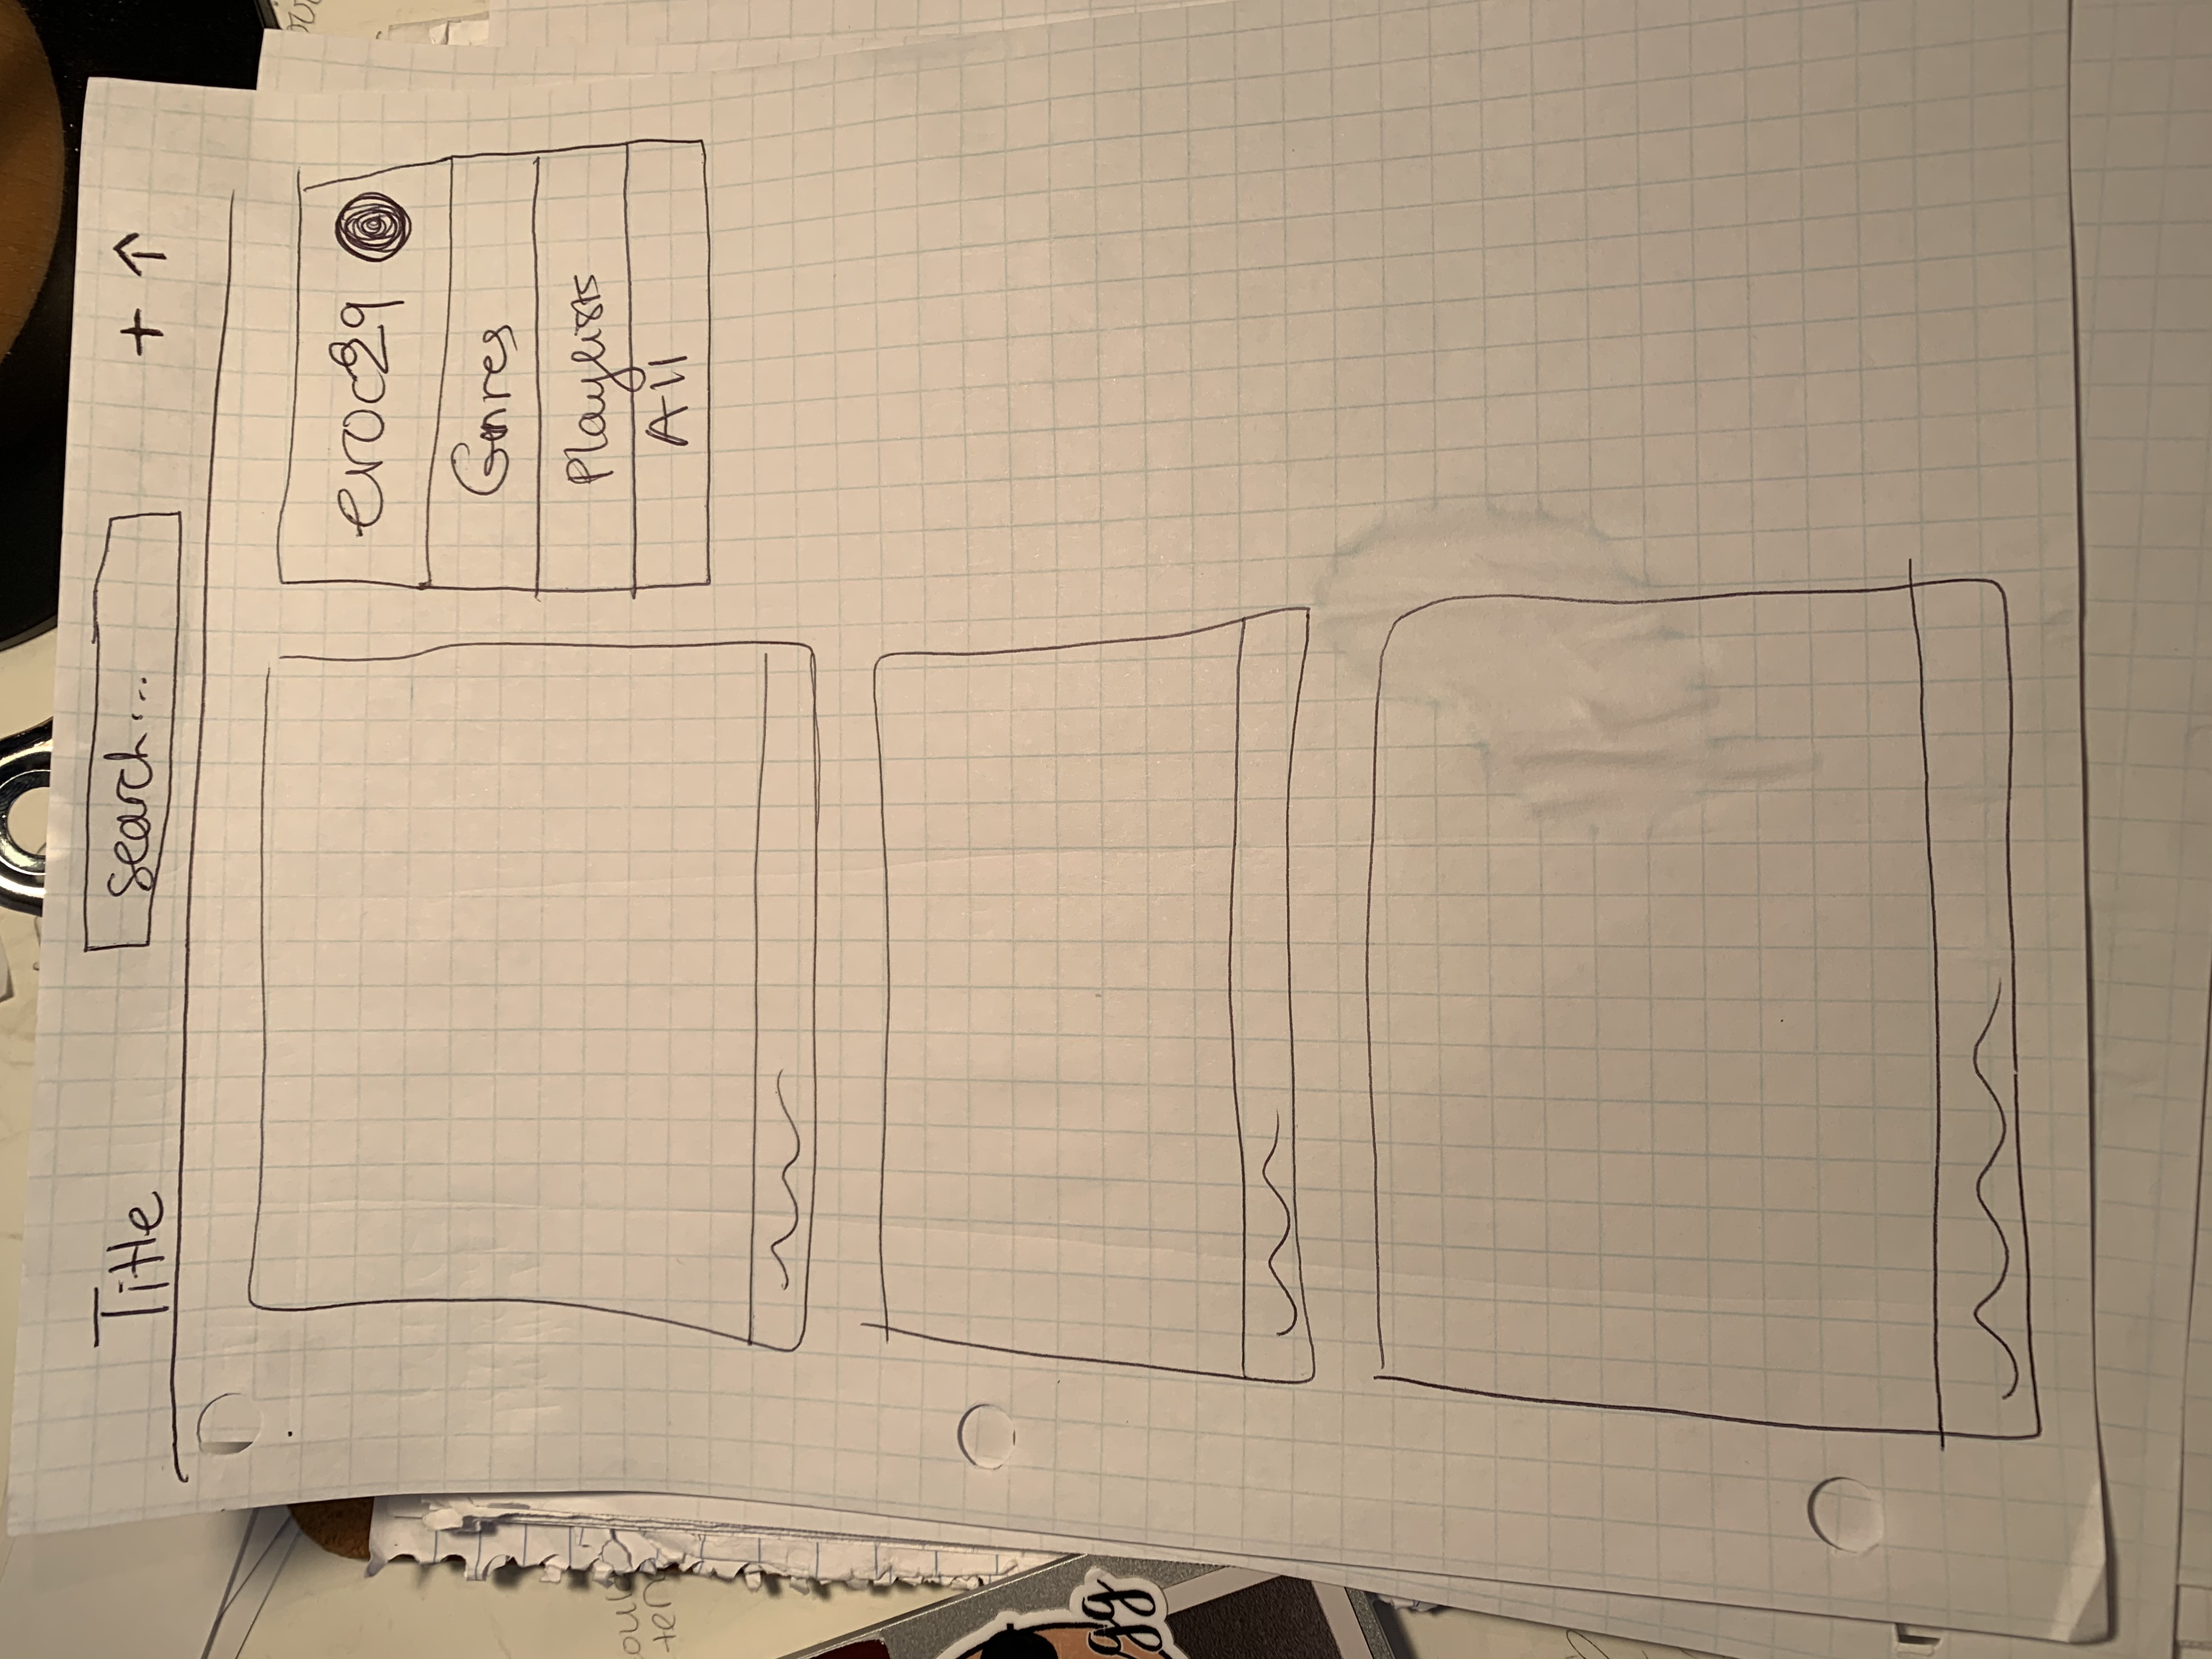 Title
search...
+ ↑
eroc29
Genres
Playlists
All
gg